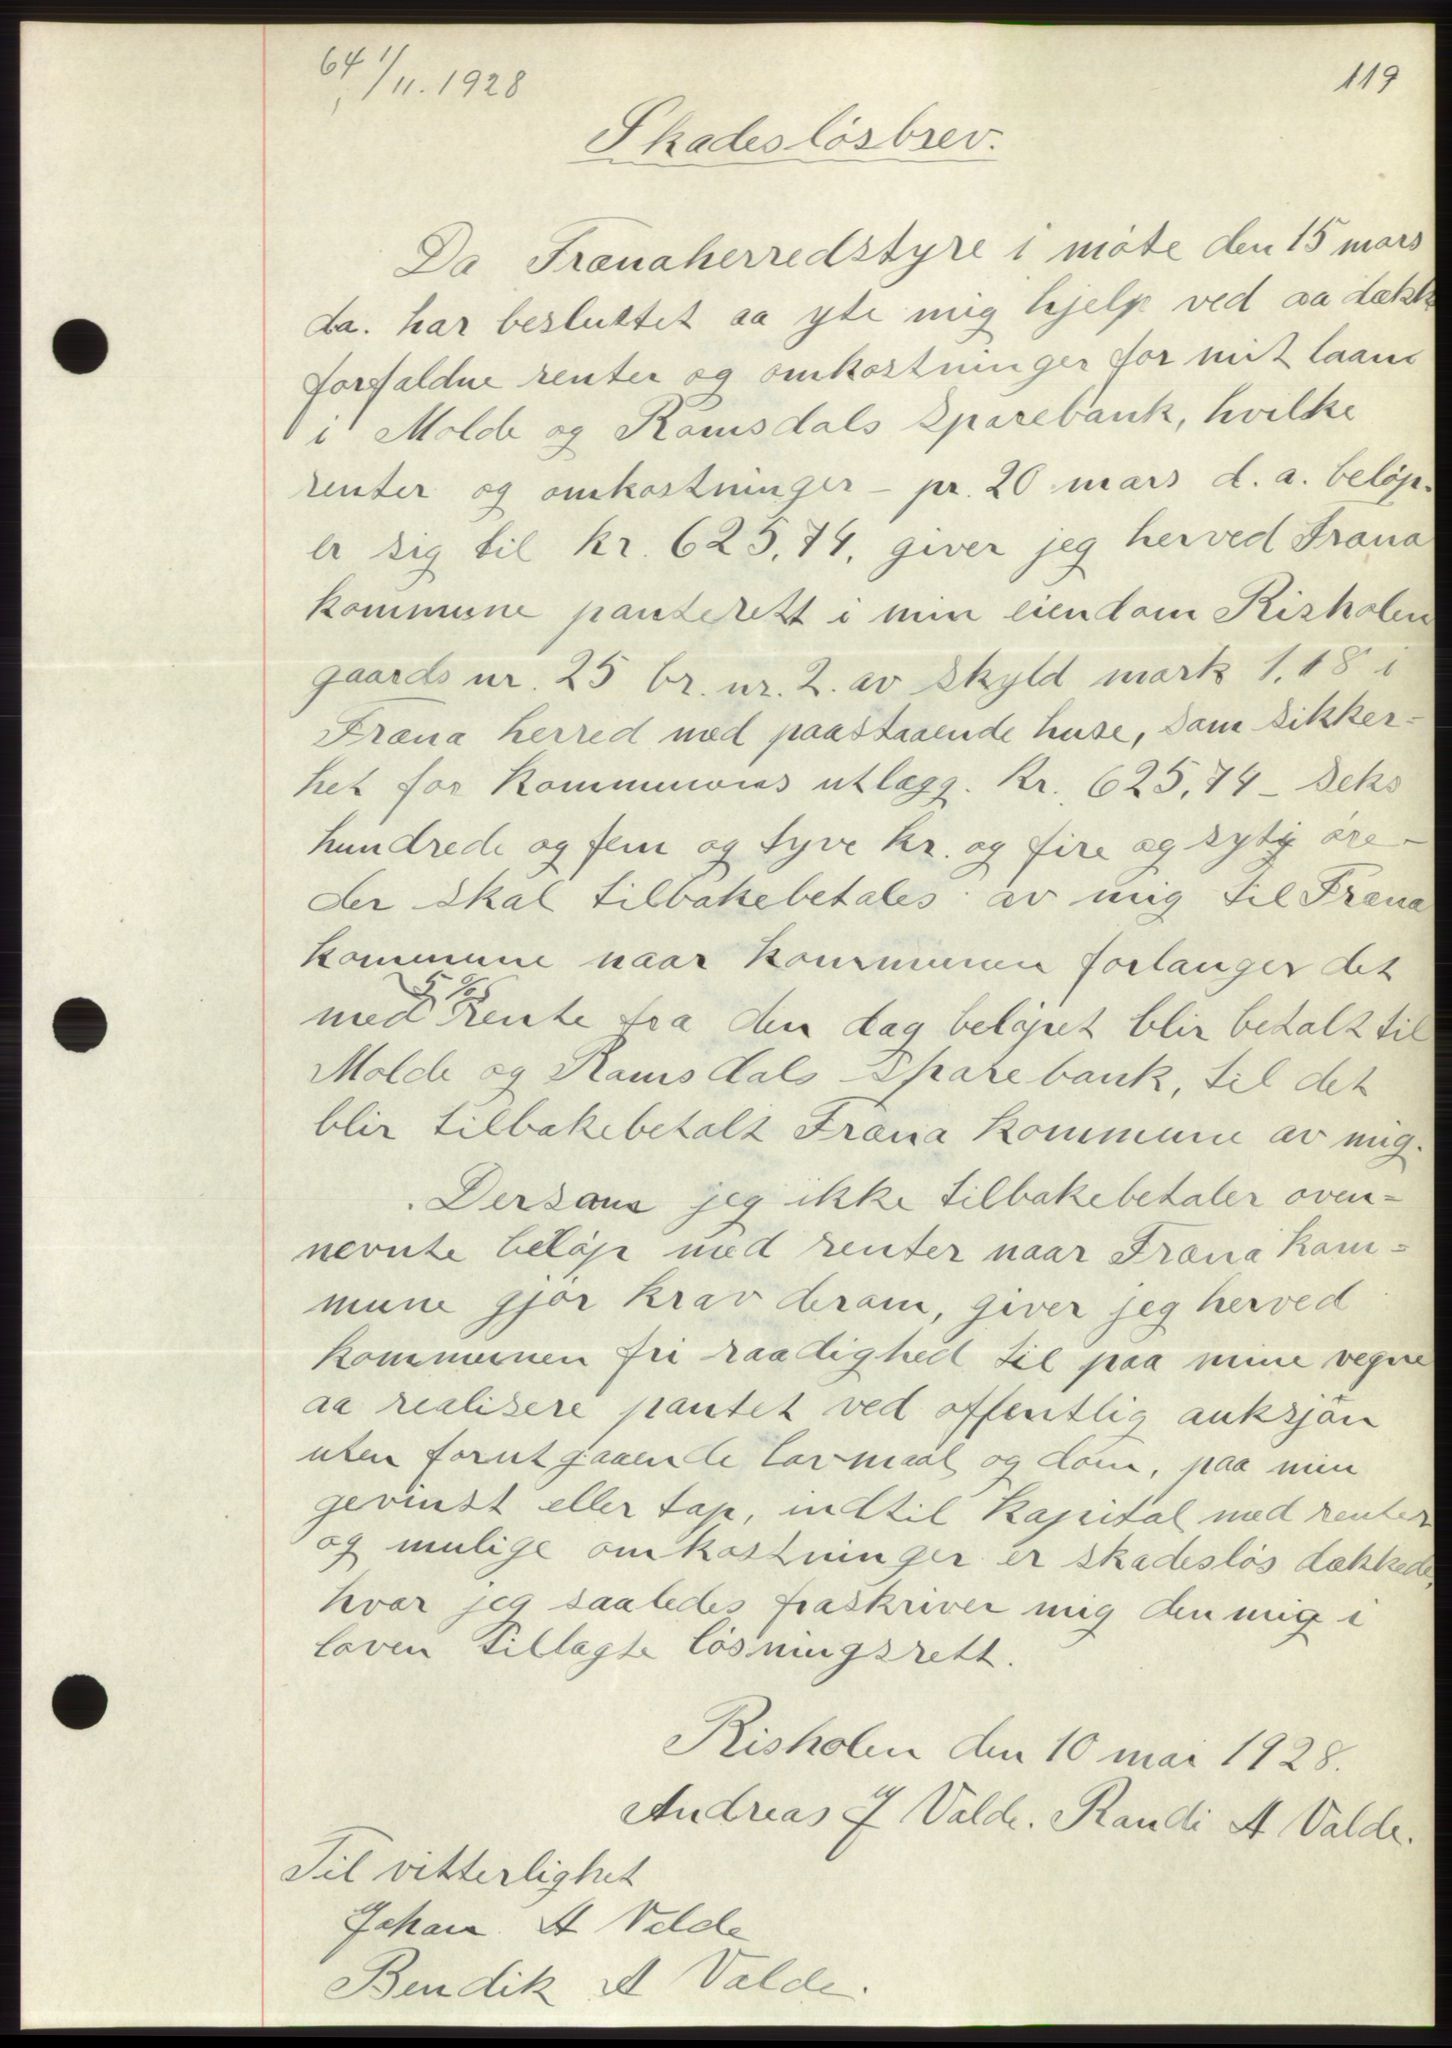 64 1/11. 1928
119
Skadesløsbrev.
Da Frænaherredstyre i møte den 15 mars
d.a. har besluttet aa yte mig hjelp ved aa dækk
forfaldne renter og omkostninger for mit laan
i Molde og Romsdals Sparebank, hvilke
renter og omkostninger - pr. 20 mars d.a. beløp-
er sig til kr. 625,74, giver jeg herved Fræna
kommune panterett i min eiendom Risholen
gaards nr. 25 br. nr. 2. av skyld mark 1,18 i
Fræna herred med paastaaende huse, som sikker=
het for kommunens utlægg. Kr. 625,74 - seks
hundrede og fem og tyve kr. og fire og syty øre -
der skal tilbakebetales av mig til Fræna
kommune naar kommunen forlanger det
med 5 % rente fra den dag beløpet blir betalt til
Molde og Romsdals Sparebank, til det
blir tilbakebetalt Fræna kommune av mig.
Dersom jeg ikke tilbakebetaler oven=
nevnte beløp med renter naar Fræna kom=
mune gjør krav derom, giver jeg herved
kommunen fri raadighed til paa mine vegne
aa realisere pantet ved offentlig auksjon
uten forutgaaende lovmaal og dom, paa min
gevinst eller tap, indtil kapital med renter
og mulige omkostninger er skadesløs dækkede,
hvor jeg saaledes fraskriver mig den mig i
loven tillagte løsningsrett.
Risholen den 10 mai 1928.
Andreas J Valde. Randi A Valde.
Til vitterlighet
Johan A Valde
Bendik A Valde.